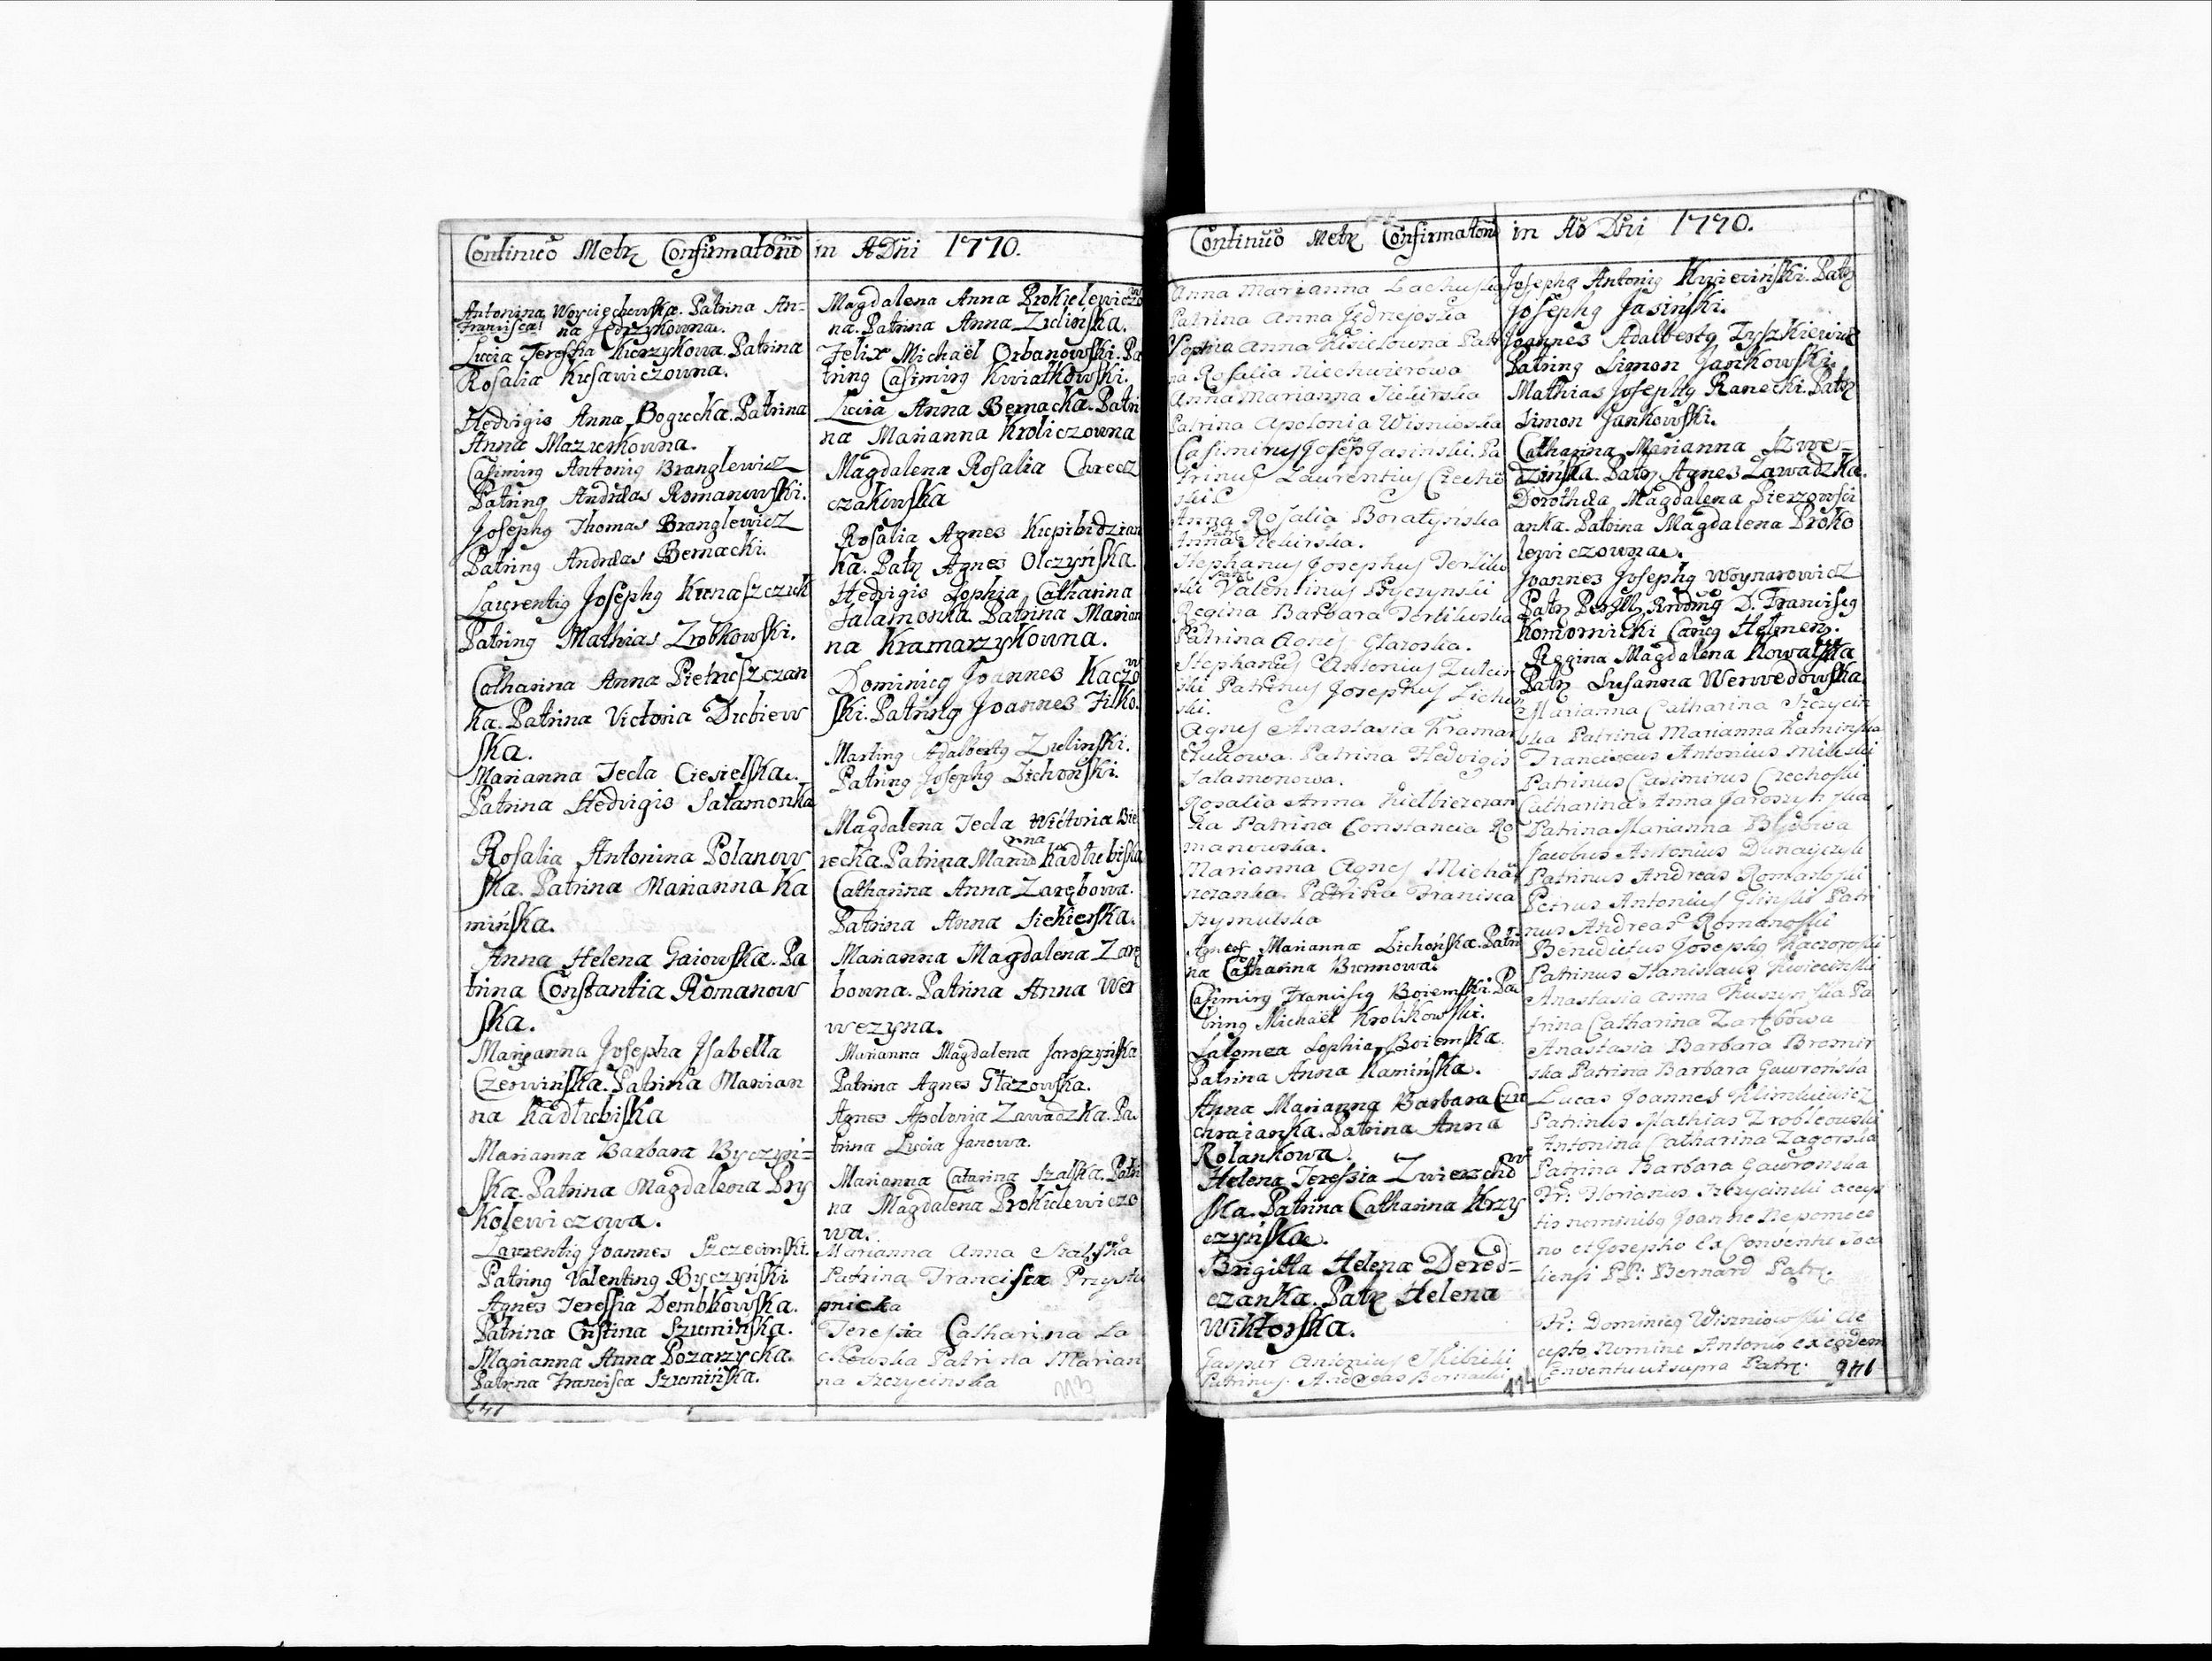 Continuo Metr Confirmatoru in A Dni 1770.
Antonina Woyciechowska. Patrina An-
Francisca na Jędrzykowna.
Lucia Teressia Kucrzykowa. Patrina
Rosalia Kusawiczowna.
Hedvigis Anna Bogucka. Patrina
Anna Mazurkowna.
Casimirq Antoniq Branglewicz
Patrinq Andreas Romanowski.
Josephq Thomas Branglewicz
Patrinq Andreas Bernacki.
Laurentiq Josephq Kunaszczuk
Patrinq Mathias Zrobkowski.
Catharina Anna Pietruszczan
ka. Patrina Victoria Dubiew
ska.
Marianna Tecla Ciesielska.
Patrina Hedvigis Salamonka
Rosalia Antonina Polanow
ska. Patrina Marianna Ka
mińska.
Anna Helena Gaiowska. Pa
trina Constantia Romanow
ska.
Marianna Josepha Isabella
Czerwińska. Patrina Marian
na Kadłubiska
Marianna Barbara Byczyń=
ska. Patrina Magdalena Pry
kolewiczowa.
Laurentiq Joannes Szczecinski.
Patrinq Valentinq Byczyński
Agnes Teressia Dembkowska.
Patrina Cristina Szumińska.
Marianna Anna Pozarzycka.
Patrina Francisca Szumińska.
Magdalena Anna Prokulewiczow
na. Patrina Anna Zielińska.
Felix Michaël Orbanowski. Pa
trinq Casimirq Kwiatkowski.
Lucia Anna Bernacka. Patri
na Marianna Kroliczowna
Magdalena Rosalia Chrecz
czakowska
Rosalia Agnes Kiepibidzian
ka. Patr Agnes Olczyńska.
Hedvigis Sophia Catharina
Salamonka. Patrina Marian
na Kramarzykowna.
Dominicq Joannes Kaczow
ski. Patrinq Joannes Filko.
Martinq Adalbertq Zielinski.
Patrinq Josephq Lichonski.
Magdalena Tecla Wictoria Bie
recka. Patrina Marianna Kadłubiska
Catharina Anna Zarębowa.
Patrina Anna Siekierska.
Marianna Magdalena Zarę
bowna. Patrina Anna Wer
wezyna.
Marianna Magdalena Jaroszyńska
Patrina Agnes Głazowska.
Agnes Apolonia Zawadzka. Pa
trina Lucia Janowa.
Marianna Catarina Szalska. Patri
na Magdalena Prokulewiczo
wa.
Marianna Anna Szalska
Patrina Francisca Przystu
pnicka
Teresia Catharina La
ckowska Patrina Marian
na Szczycinska
113
Continuo Metr Confirmaton in Ao Dni 1770.
Anna Marianna Lachuska
Patrina Anna Jędrzejoska
Sophia Anna Kisielowna Patri
na Rosalia Niechwierowa
Anna Marianna Siekirska
Patrina Apolonia Wisnioska
Casimirus Joseph Jasinski. Pa
trinus Laurentius Ciecho
ski.
Anna Rosalia Boratyńska
Patr Anna Siekirska.
Stephanus Josephus Tertilow
ski Patr Valentinus Byczynski
Regina Barbara Tertilowska
Patrina Agnes Glazoska.
Stephanus Antonius Zulin
ski Patrinus Josephus Lichon
ski.
Agnes Anastasia Kramar
czukowa. Patrina Hedvigis
Salamonowa.
Rosalia Anna Kielbierezan
ka Patrina Constancia Ro
manowska.
Marianna Agnes Michał
szczanka. Patrina Francisca
Szymulska
Agnes Marianna Lichońska. Patri
na Catharina Bunnowa.
Casimirq Franciscq Boiemski. Pa
trinq Michaël Krolikowski.
Salomea Sophia Boiemska.
Patrina Anna Kamińska.
Anna Marianna Barbara Czu
chraianka. Patrina Anna
Rolankowa.
Helena Teressia Zwierzchow
ska. Patrina Catharina Krzy
czyńska.
Brigitta Helena Dered=
czanka. Patr Helena
Wiktorska.
Gasper Antonius Skibicki
Patrinus Andreas Bernacki
114
Josephq Antoniq Kwieciński. Patr
Josephq Jasiński.
Joannes Adalbertq Tyszkiewicz
Patrinq Simon Jankowski.
Mathias Josephq Ranecki. Patr
Simon Jankowski.
Catharina Marianna Szwe=
dzińska. Patr Agnes Zawadzka.
Dorothea Magdalena Pierzowsci
anka. Patrina Magdalena Proko
lewiczowna.
Joannes Josephq Woynarowicz
Patr Per Ill Rndmq D. Franciscq
Komornicki Cancq Helmen.
Regina Magdalena Kowalska
Patr Susanna Werwedowska.
Marianna Catharina Szczycin
ska Patrina Marianna Kaminska
Franciscus Antonius Mileski
Patrinus Casimirus Czechoski
Catharina Anna Jaroszynska
Patrina Marianna Blidowa
Jacobus Antonius Dunaiczyk
Patrinus Andreas Romanoski
Petrus Antonius Glinski Patri
nus Andreas Romanoski
Benedictus Josephq Kaczoroski
Patrinus Stanislaus Kwiecinski
Anastasia Anna Kuszynska Pa
trina Catharina Zarębowa
Anastasia Barbara Bromir
ska Patrina Barbara Gawrońska
Lucas Joannes Klimkiewicz
Patrinus Mathias Zroblewski
Antonina Catharina Zagorska
Patrina Barbara Gawronska
Fr: Florianus Szczycinski accep
tis nominibq Joanne Nepomece
no et Josepho Ex Conventu Soca
liensi PP: Bernard Patr.
Fr: Dominicq Wiszniowski Ac
cepto Nomine Antonio ex eodem
Conventu ut supra Patr: 941